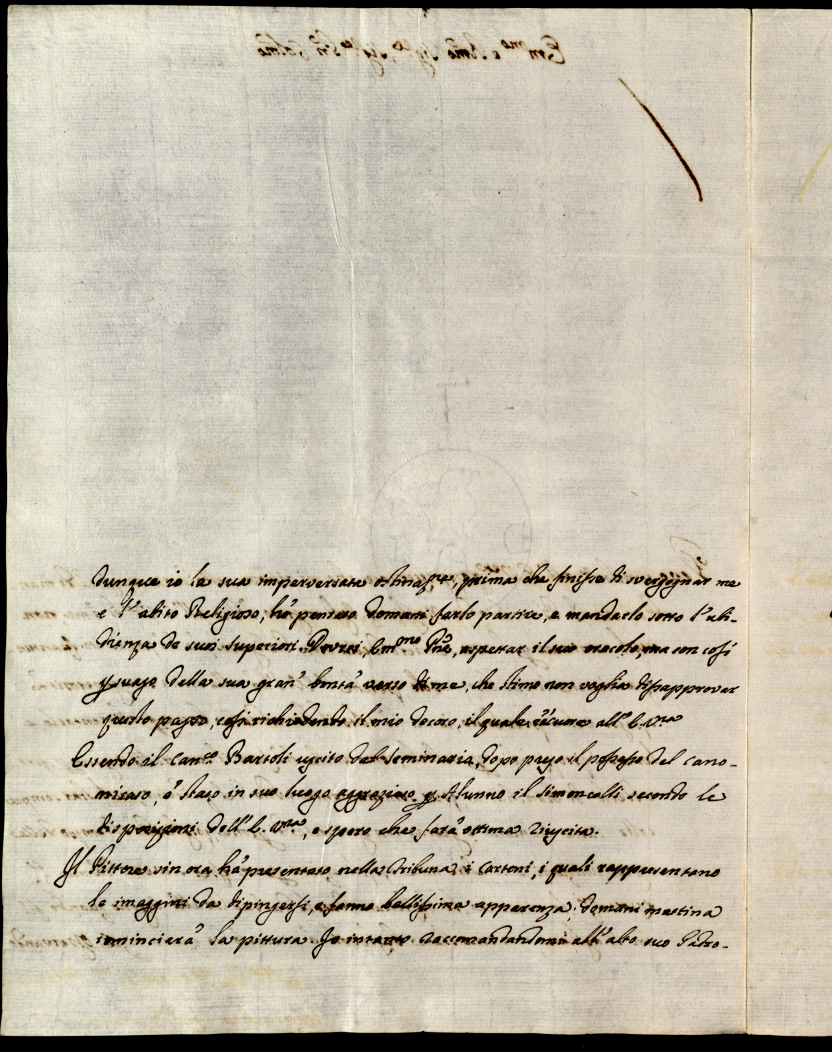 dunque io la sua imperversata ostinaz.ne, prima che finisse di svergognar me
e l'abito Religioso, hò pensato domani farlo partire, e mandarlo sotto l'ubi-
dienza de suoi superiori. Dovrei, Em.mo Pñe, aspettar il suo oracolo, ma con così
della sua gran bontà verso di me, che stimo non voglia disapprovar
questo passo, così richiedendo il mio decoro, il quale è à cuore all' E. Vra
Essendo il Can.co Bartoli uscito dal Seminario, dopo preso il possesso del cano-
nicato, è stato in suo luogo aggraziato p Alunno il Simoncelli secondo le
disposizioni dell' E. Vra, e spero che farà ottima riuscita.
Il Pittore sin ora hà presentato nella Tribuna i cartoni, i quali rappresentano
le imaggini da dipingersi, e fanno bellissima apparenza; domani mattina
cominciarà la pittura. Io intanto raccomandandomi all' alto suo Padro-